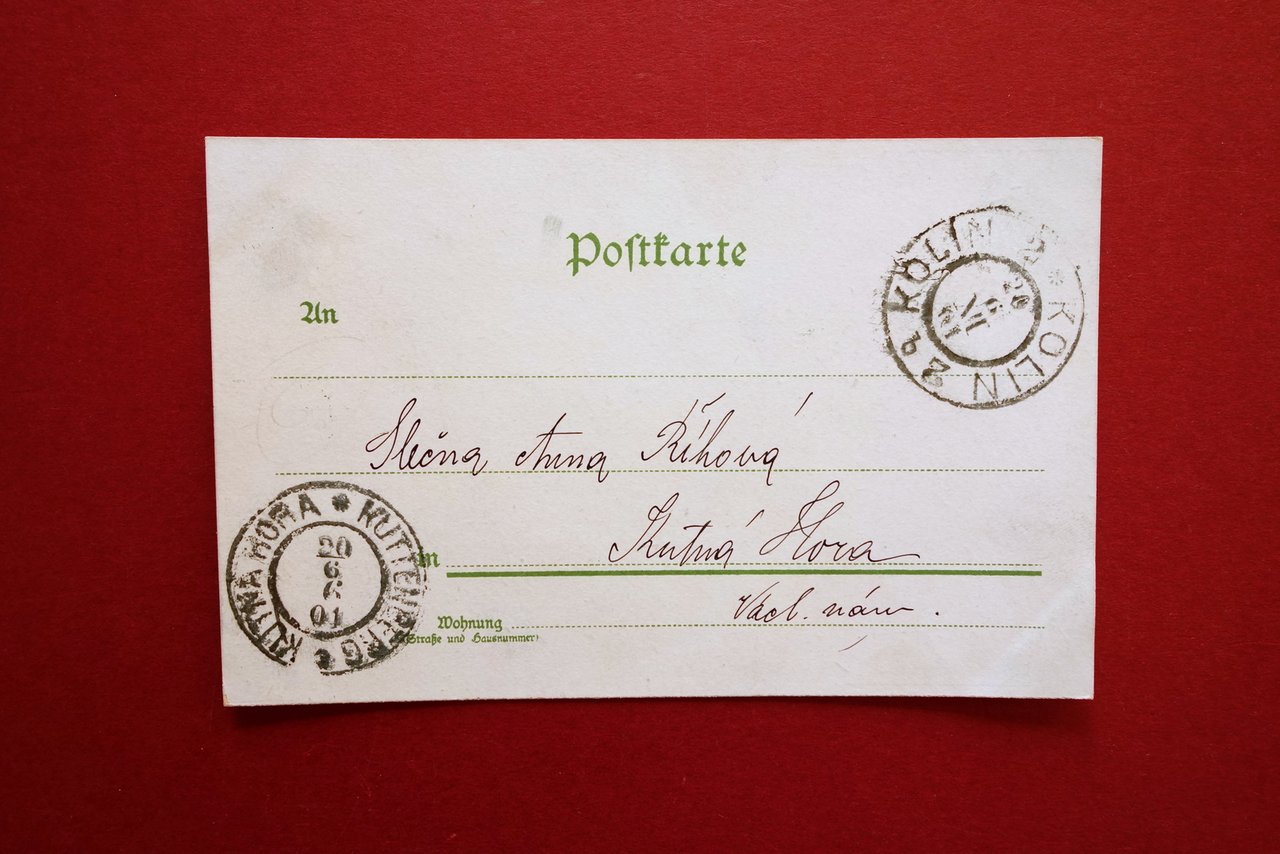 Poſtkarte
An
KOLIN 2 * KOLIN 2b
Slečna Anna Říhová
Kutná Hora
in
Václ. nám.
Wohnung
(Straße und Hausnummer)
KUTNÁ HORA * KUTTENBERG *
20
6
01